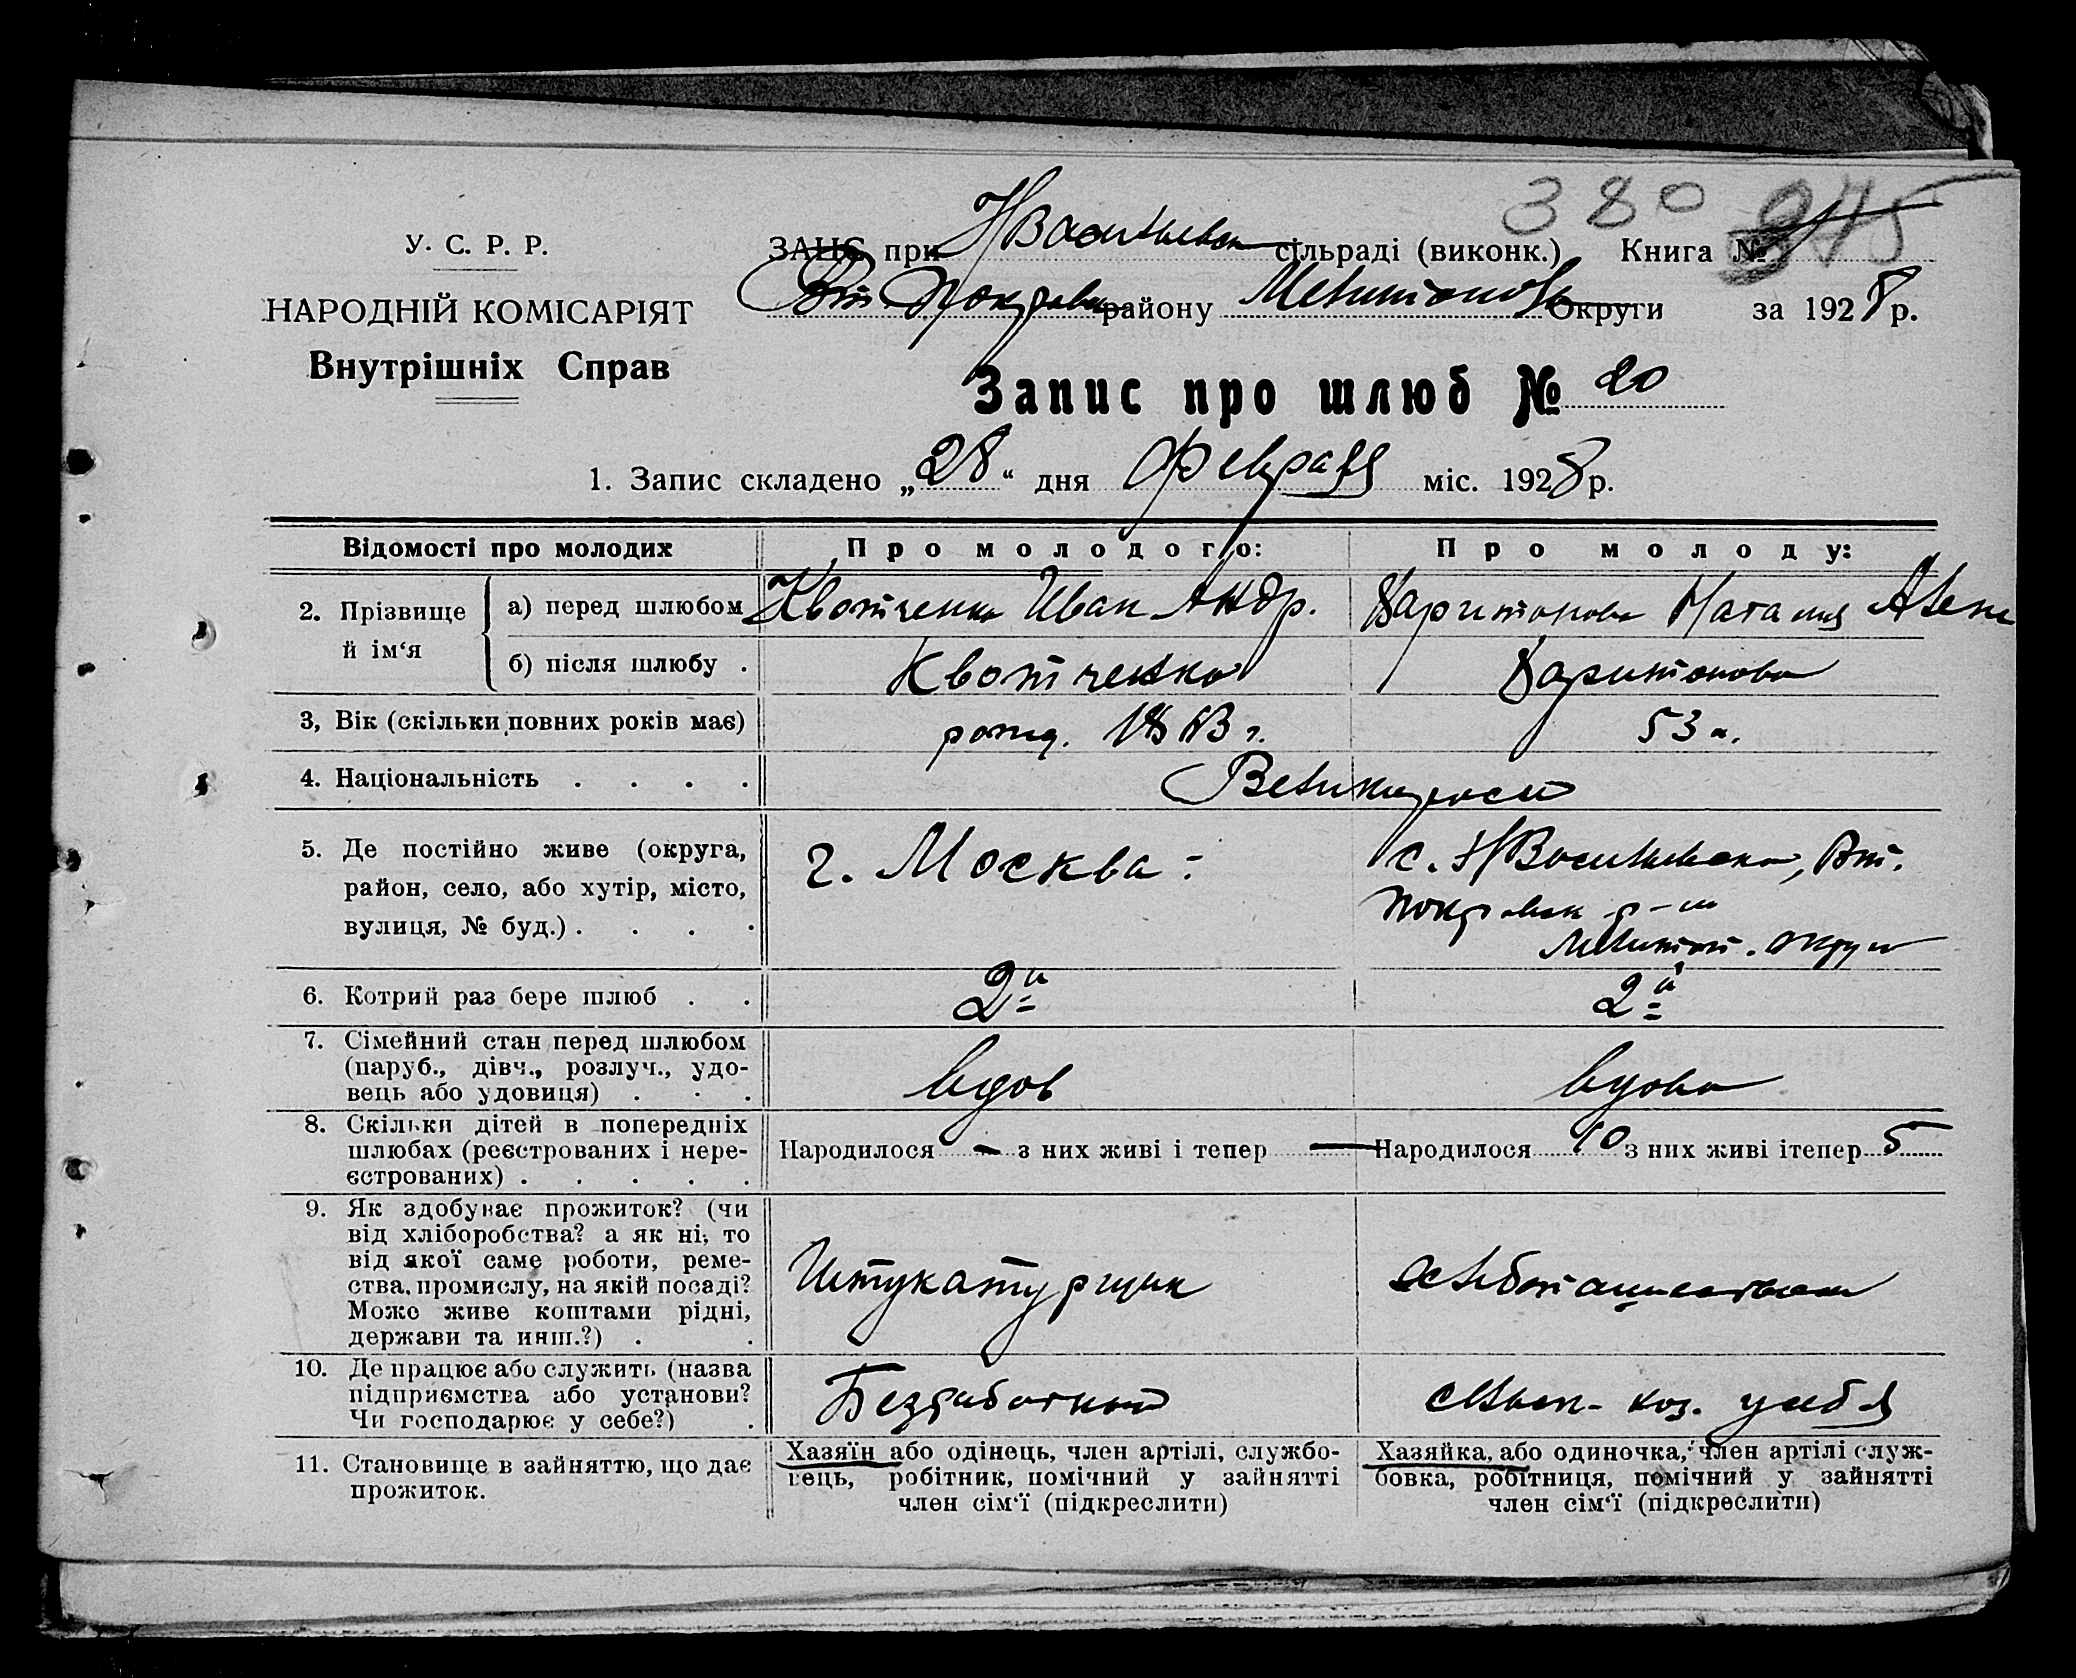 380 975
У. С. Р. Р.
НАРОДНІЙ КОМІСАРІЯТ
Внутрішніх Справ
ЗАЦС при НВасильевск сільраді (виконк.) Книга №
Вт Покровск району Мелитопольс Округи за 1928 р.
Запис про шлюб № 20
1. Запис складено „28“ дня Февраля міс. 1928 р.
Відомості про молодих Про молодого: Про молоду:
2. Прізвище й ім‘я а) перед шлюбом Квотченко Иван Андр. Харитонова Наталия
б) після шлюбу . Квотченко Харитонова
3, Вік (скільки повних років має) рожд. 53 л.
4. Національність . . . . Великоросси
5. Де постійно живе (округа, район, село, або хутір, місто, вулиця, № буд.) . . . . г. Москва с. НВасильевска, Вт. Покровск р-на Мелитоп. округи
6. Котрий раз бере шлюб . . 2й 2й
7. Сімейний стан перед шлюбом (паруб., дівч., розлуч., удовець або удовиця) . . . вдов вдова
8. Скільки дітей в попередніх шлюбах (реєстрованих і нереєстрованих) . . . . . Народилося – з них живі і тепер — Народилося 10 з них живі ітепер 5
9. Як здобуває прожиток? (чи від хліборобства? а як ні, то від якої саме роботи, ремества, промислу, на якій посаді? Може живе коштами рідні, держави та инш.?) . . Штукатурщик
10. Де працює або служить (назва підприємства або установи? Чи господарює у себе?) . Безработный сельск- хоз. у себя
11. Становище в зайняттю, що дає прожиток. Хазяїн або одінець, член артілі, службовець, робітник, помічний у зайнятті член сім‘ї (підкреслити) Хазяйка, або одиночка, член артілі службовка, робітниця, помічний у зайнятті член сім‘ї (підкреслити)